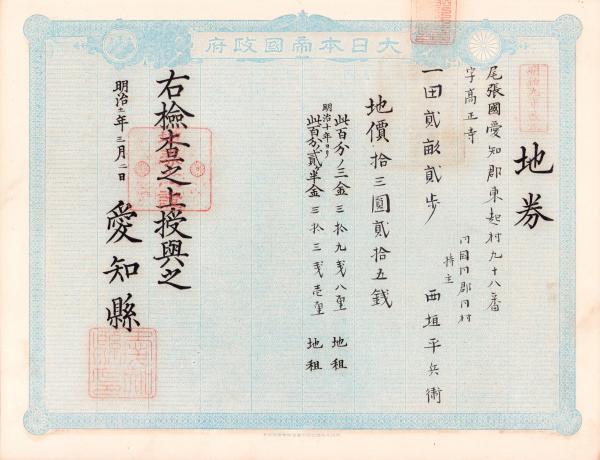 大日本帝國政府
地券
尾張國愛知郡東起村九十八番
字高正寺
同國同郡同村
持主
一田貳畝貳歩 西垣平兵衛
地價拾三圓貳拾五錢
此百分ノ三金三拾九錢八厘 地租
明治十年ヨリ
此百分ノ貳半金三拾三錢壱厘 地租
右檢査之上授與之
明治十二年三月二日
愛知縣